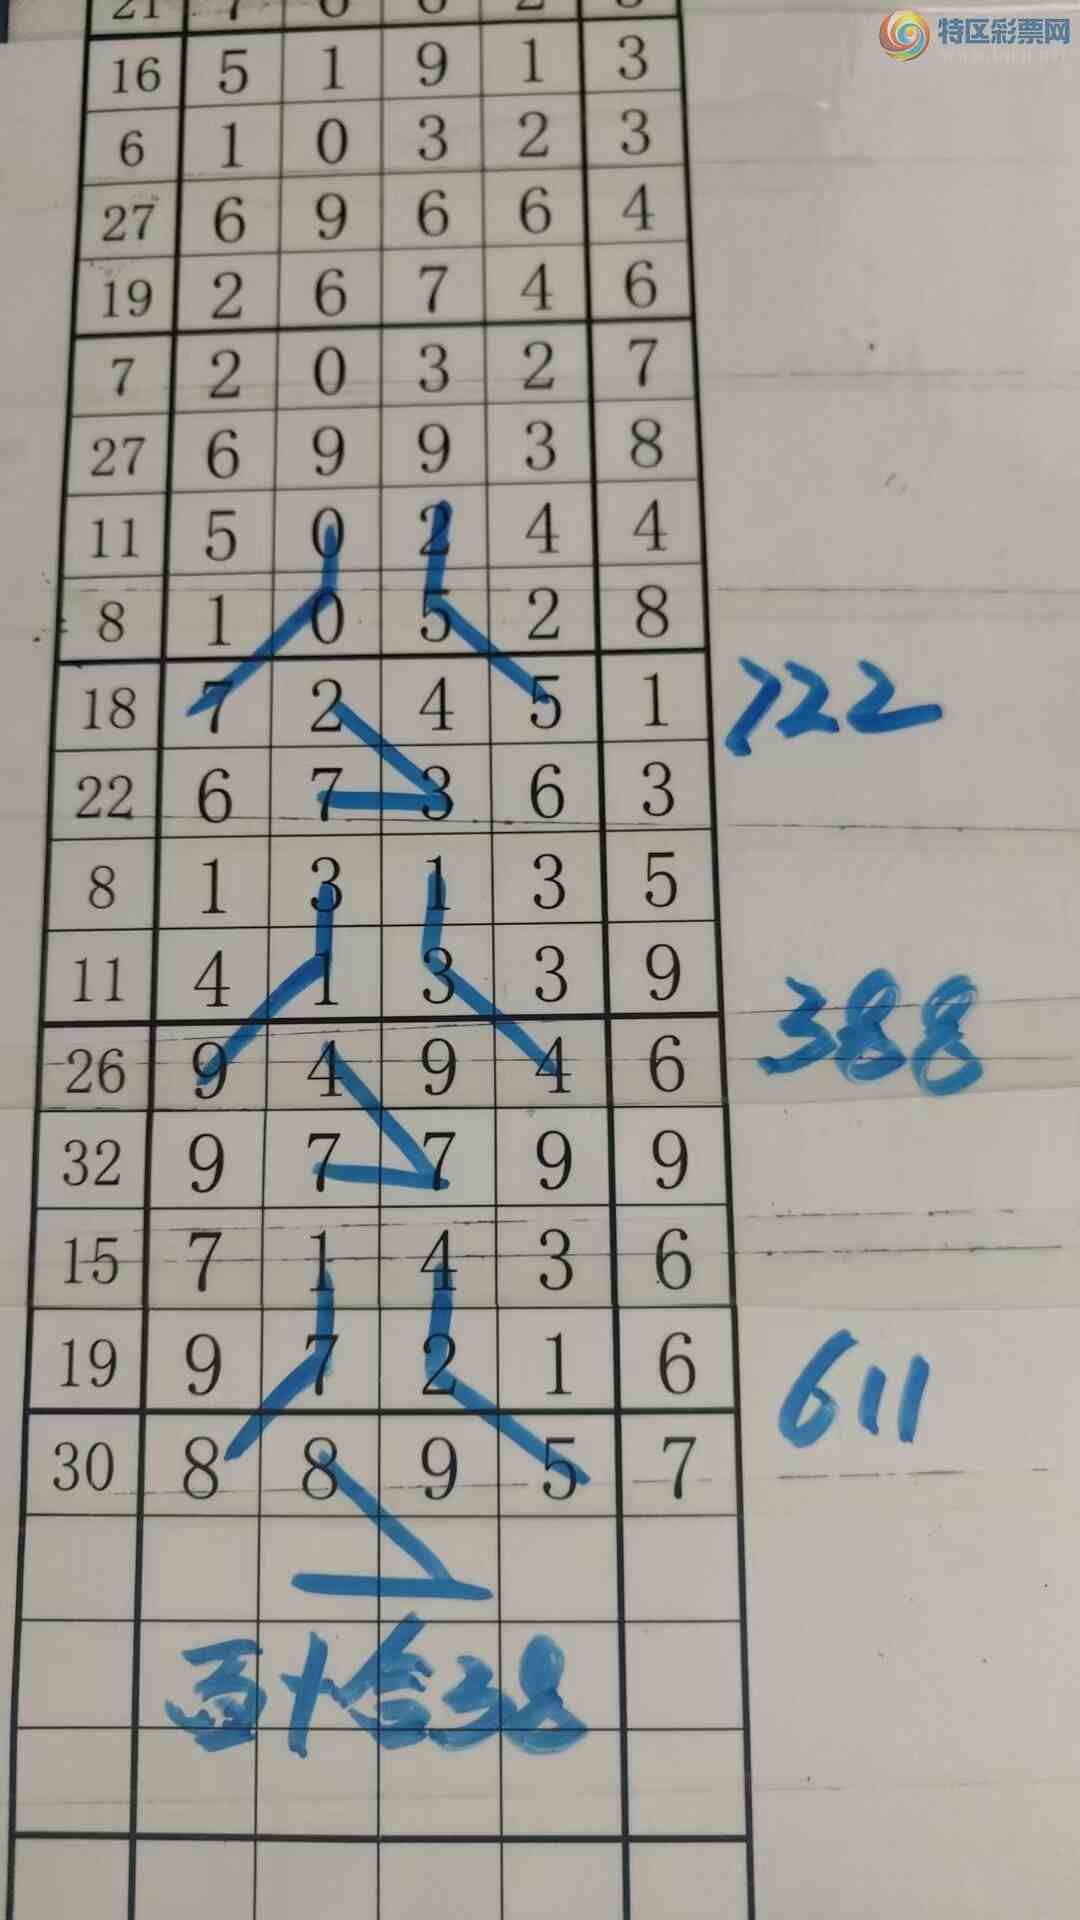 特区彩票网
16 5 1 9 1 3
6 1 0 3 2 3
27 6 9 6 6 4
19 2 6 7 4 6
7 2 0 3 2 7
27 6 9 9 3 8
11 5 0 2 4 4
8 1 0 5 2 8
18 7 2 4 5 1 722
22 6 7 3 6 3
8 1 3 1 3 5
11 4 1 3 3 9
26 9 4 9 4 6 388
32 9 7 7 9 9
15 7 1 4 3 6
19 9 7 2 1 6 611
30 8 8 9 5 7
百十合38